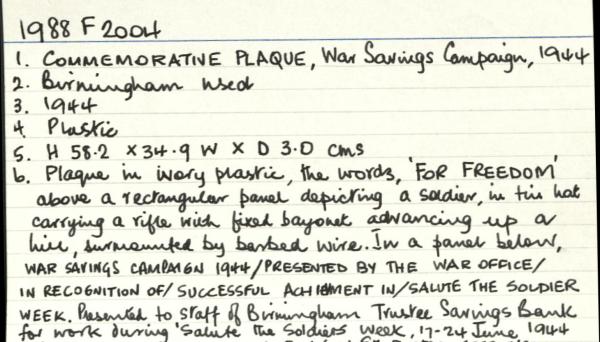 1988 F 2004
1. COMMEMORATIVE PLAQUE, War Savings Campaign, 1944
2. Birmingham used
3. 1944
4. Plastic
5. H 58.2 x 34.9 W x D 3.0 cms
6. Plaque in ivory plastic, the words, 'FOR FREEDOM'
above a rectangular panel depicting a soldier, in tin hat
carrying a rifle with fixed bayonet advancing up a
hill, surmounted by barbed wire. In a panel below,
WAR SAVINGS CAMPAIGN 1944/PRESENTED BY THE WAR OFFICE/
IN RECOGNITION OF/SUCCESSFUL ACHIEMENT IN/SALUTE THE SOLDIER
WEEK. Presented to staff of Birmingham Trustee Savings Bank
for work during 'Salute the Soldiers Week, 17-24 June 1944